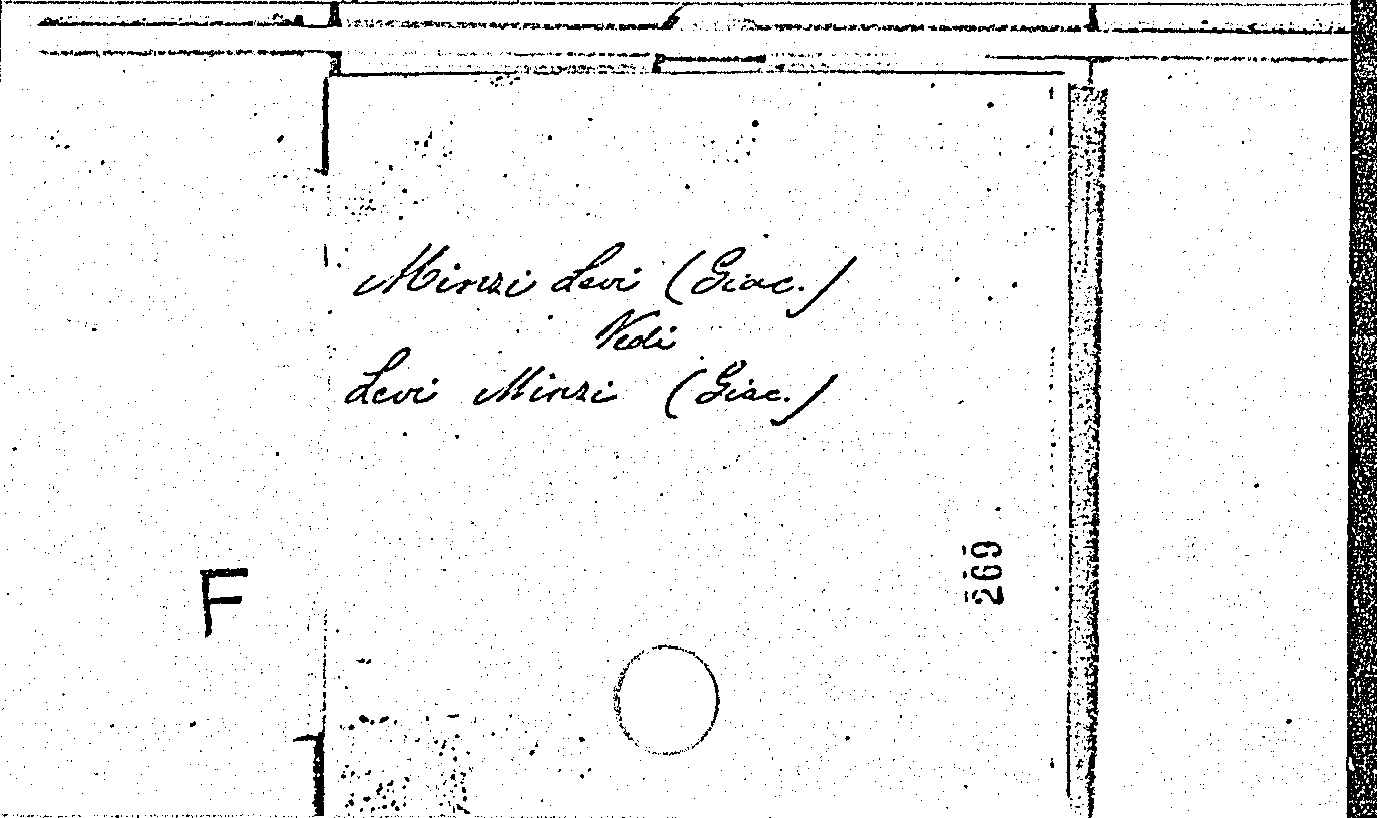 Minzi Levi (Giac.)
Vedi
Levi Minzi (Giac.)
F
269